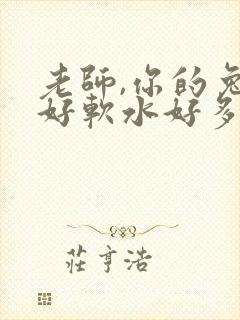 老師,你的兔
好軟水好多
莊亨浩